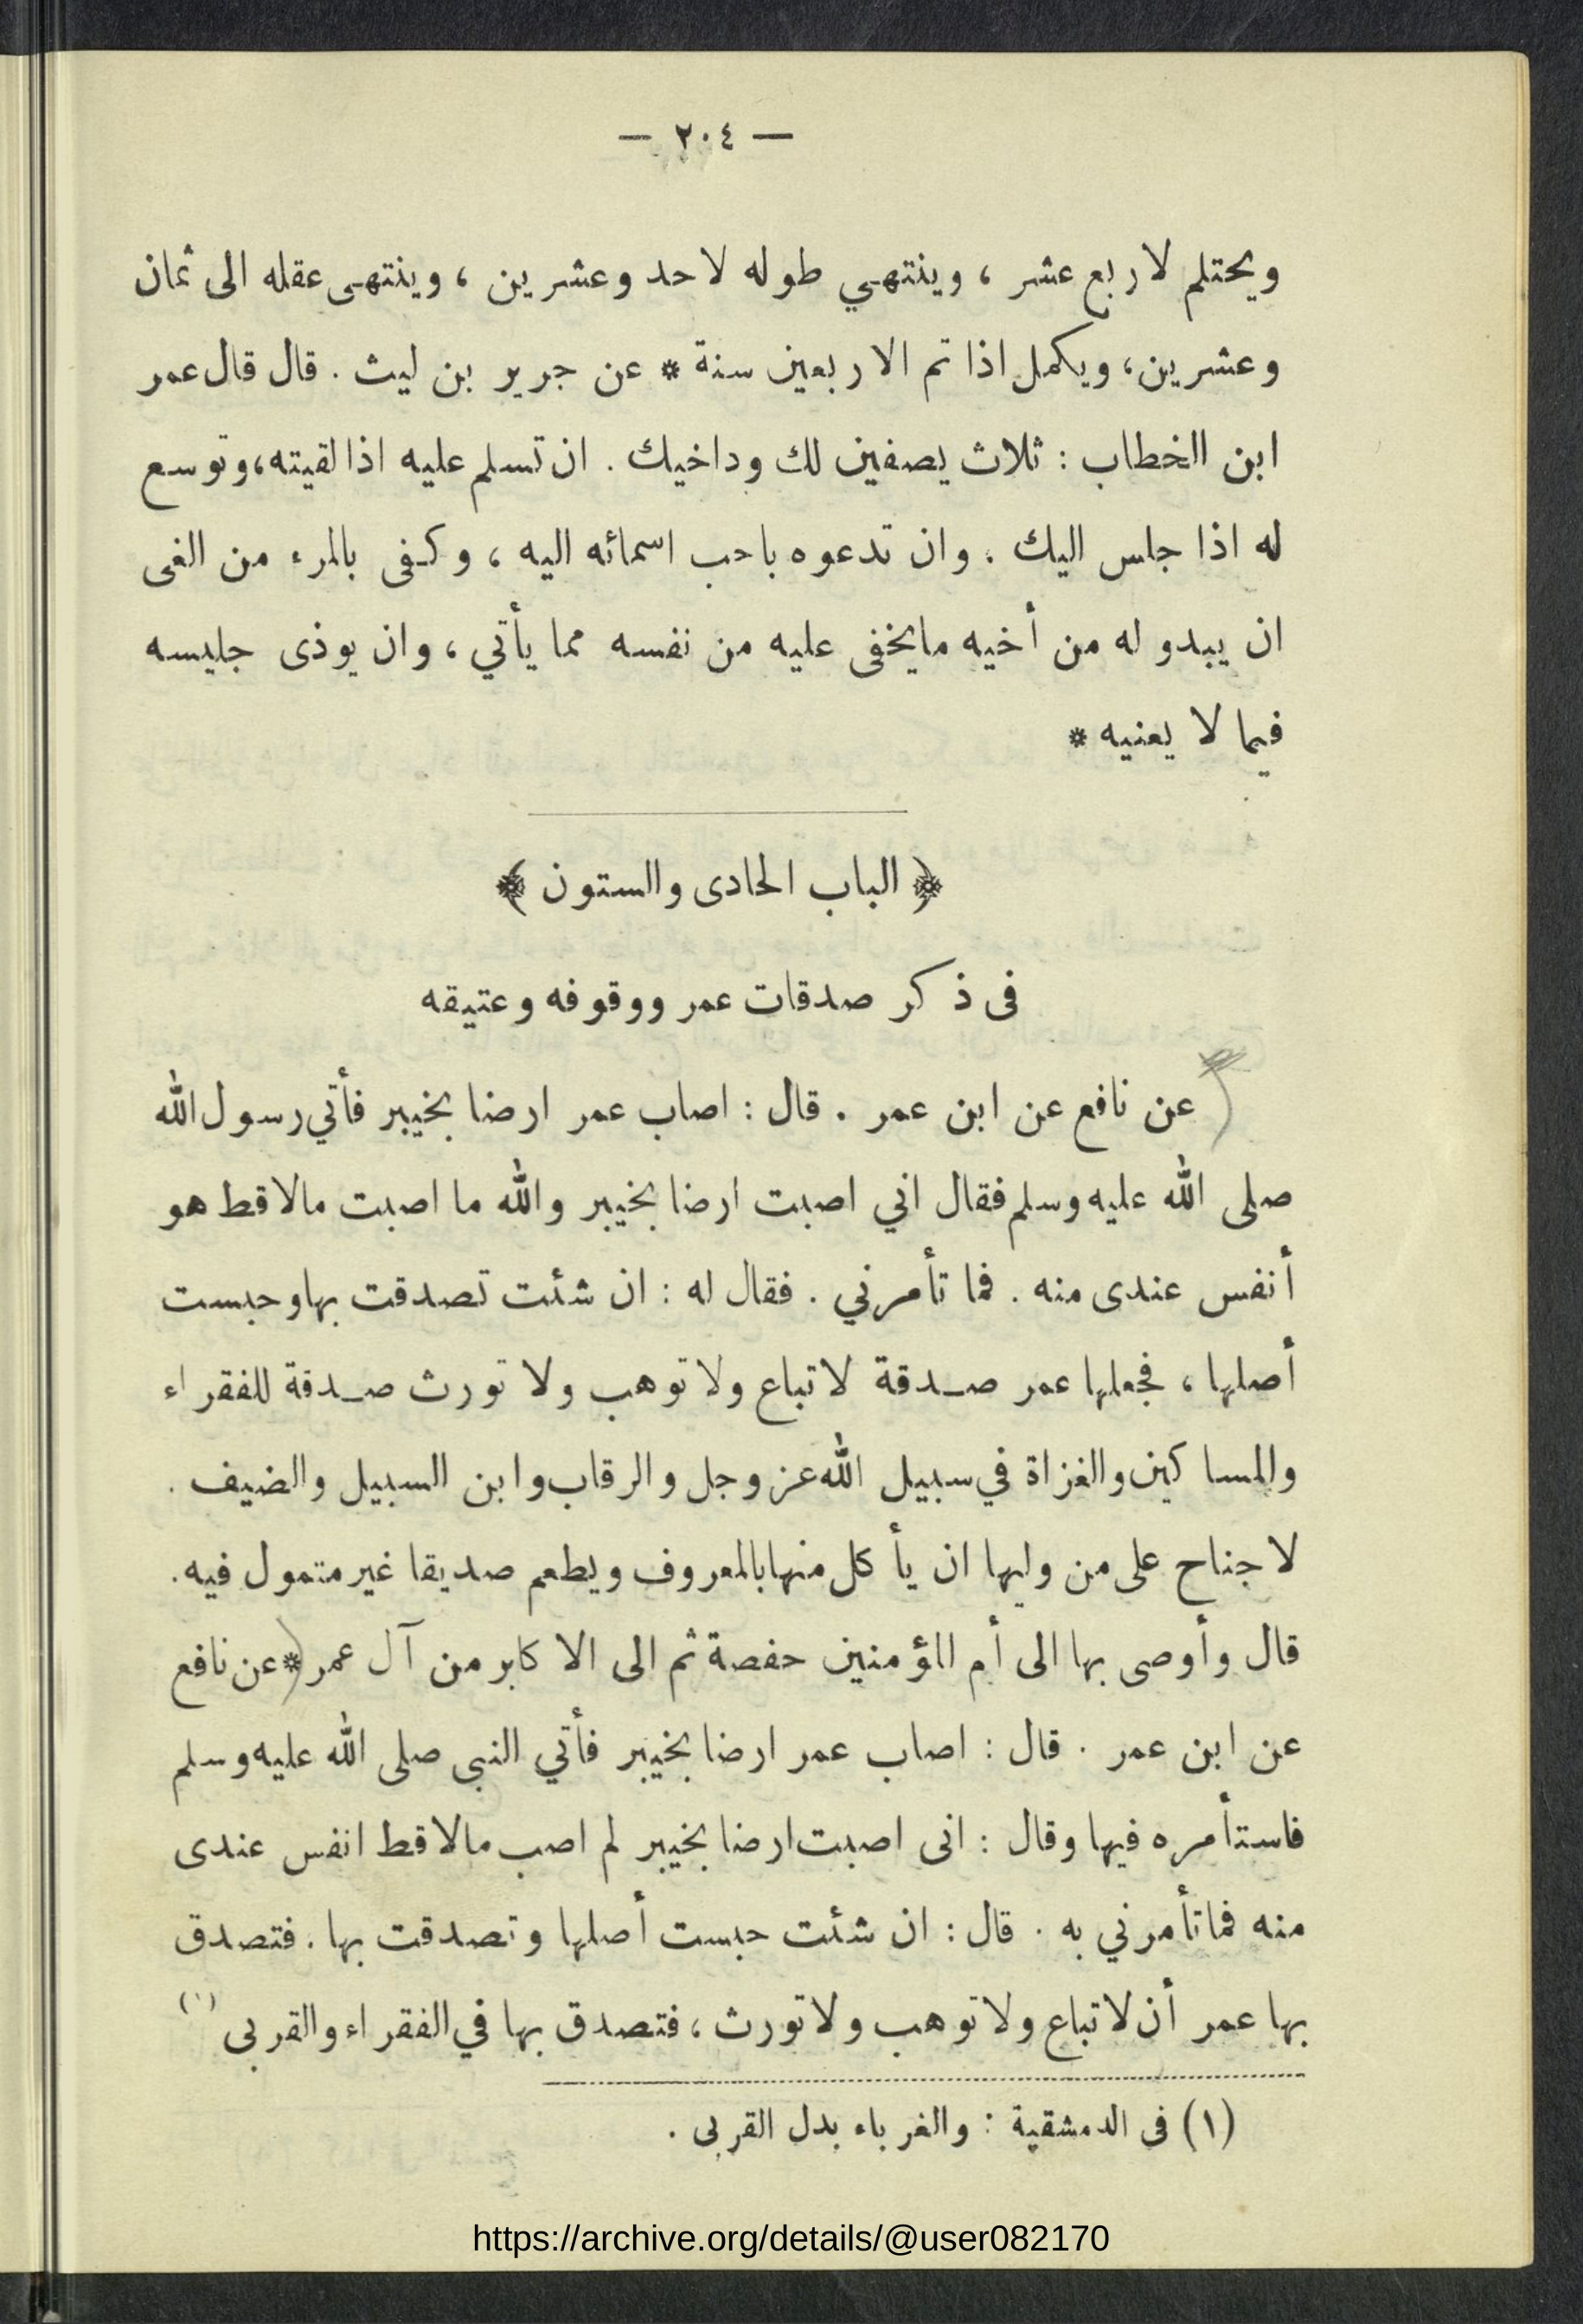 — ٢٠٤ —
ويحتلم لاربع عشر ، وينتهي طوله لاحد وعشرين ، وينتهى عقله الى ثمان
وعشرين، ويكمل اذا تم الاربعين سنة * عن جرير بن ليث . قال قال عمر
ابن الخطاب : ثلاث يصفين لك وداخيك . ان تسلم عليه اذا لقيته، وتوسع
له اذا جلس اليك . وان تدعوه باحب اسمائه اليه ، وكفى بالمرء من الغى
ان يبدو له من أخيه مايخفى عليه من نفسه مما يأتي ، وان يوذى جليسه
فيما لا يعنيه *
﴿ الباب الحادى والستون ﴾
فى ذكر صدقات عمر ووقوفه وعتيقه
عن نافع عن ابن عمر . قال : اصاب عمر ارضا بخيبر فأتي رسول الله
صلى الله عليه وسلم فقال اني اصبت ارضا بخيبر والله ما اصبت مالا قط هو
أنفس عندى منه . فما تأمرني . فقال له : ان شئت تصدقت بها وحبست
أصلها ، فجعلها عمر صدقة لا تباع ولا توهب ولا تورث صدقة للفقراء
والمساكين والغزاة في سبيل الله عز وجل والرقاب وابن السبيل والضيف .
لا جناح على من وليها ان يأكل منها بالمعروف ويطعم صديقا غير متمول فيه .
قال وأوصى بها الى أم المؤمنين حفصة ثم الى الاكابر من آل عمر * عن نافع
عن ابن عمر . قال : اصاب عمر ارضا بخيبر فأتي النبى صلى الله عليه وسلم
فاستأمره فيها وقال : انى اصبت ارضا بخيبر لم اصب مالا قط انفس عندى
منه فما تأمرني به . قال : ان شئت حبست أصلها وتصدقت بها . فتصدق
بها عمر أن لا تباع ولا توهب ولا تورث ، فتصدق بها في الفقراء والقربى (١)
(١) فى الدمشقية : والغرباء بدل القربى .
https://archive.org/details/@user082170